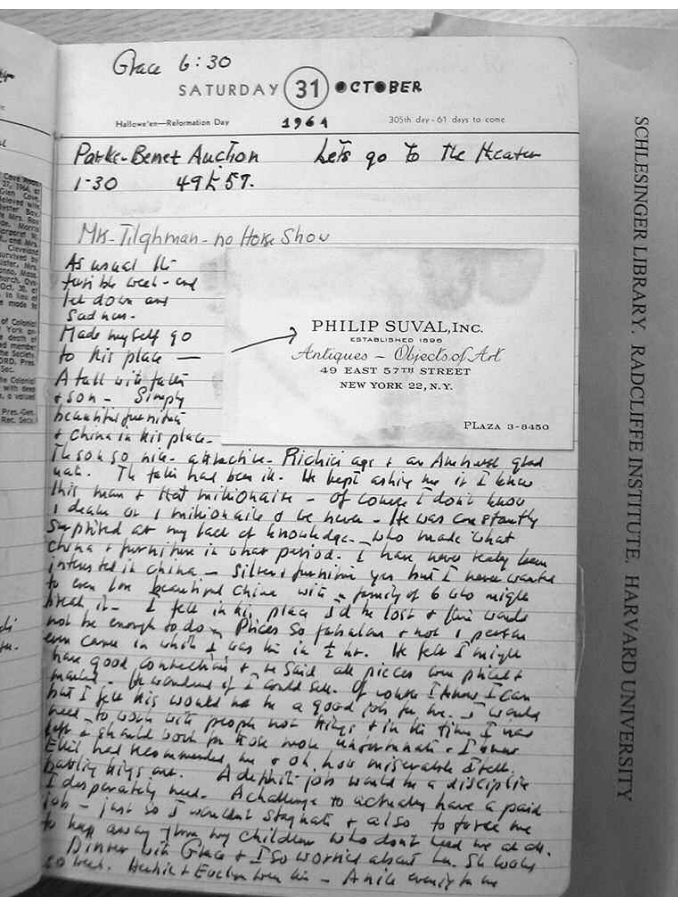 Grace 6:30
SATURDAY 31 OCTOBER
Hallowe'en—Reformation Day 1964 305th day - 61 days to come
Parke-Benet Auction Let's go to the theater
1-30 49 E 57.
Mr. Tilghman - no Horse Show
As usual the
terrible week - and
let down and
Sadness.
Made myself go
to his place —
A talk with father
+ son - Simply
beautiful furniture
+ China in his place.
PHILIP SUVAL, INC.
ESTABLISHED 1896
Antiques - Objects of Art
49 EAST 57TH STREET
NEW YORK 22, N.Y.
PLAZA 3-8450
The son so nice - attractive - Richie's age + an Amherst grad
The father had been ill. He kept asking me if I knew
this man + that millionaire - of course I don't know
1 dealer or 1 millionaire He was constantly
surprised at my lack of knowledge - who made what
China + furniture in what period. I have never really been
interested in china - silver + furniture yes but I never wanted
to even own beautiful China with a family of 6 who might
break it - I felt in his place I'd be lost + there would
not be enough to do - Prices so fabulous + not 1 person
even came in while I was there in ½ hr. He felt I might
have good connections + he said all pieces were priced +
marked. He wondered if I could sell. Of course I know I can
but I felt this would not be a good job for me. I would
need to work with people not things + in the time I was
left + should look for those more unfortunate + I
had recommended me + oh, how miserable I feel,
things are. A definite job would be a discipline
I desperately need. A challenge to actually have a paid
job - just so I wouldn't stagnate + also to force me
to keep away from my children who don't need me at all.
Dinner with Grace + I so worried about her. She looks
so bad. + Evelyn were here - A nice evening
SCHLESINGER LIBRARY, RADCLIFFE INSTITUTE, HARVARD UNIVERSITY